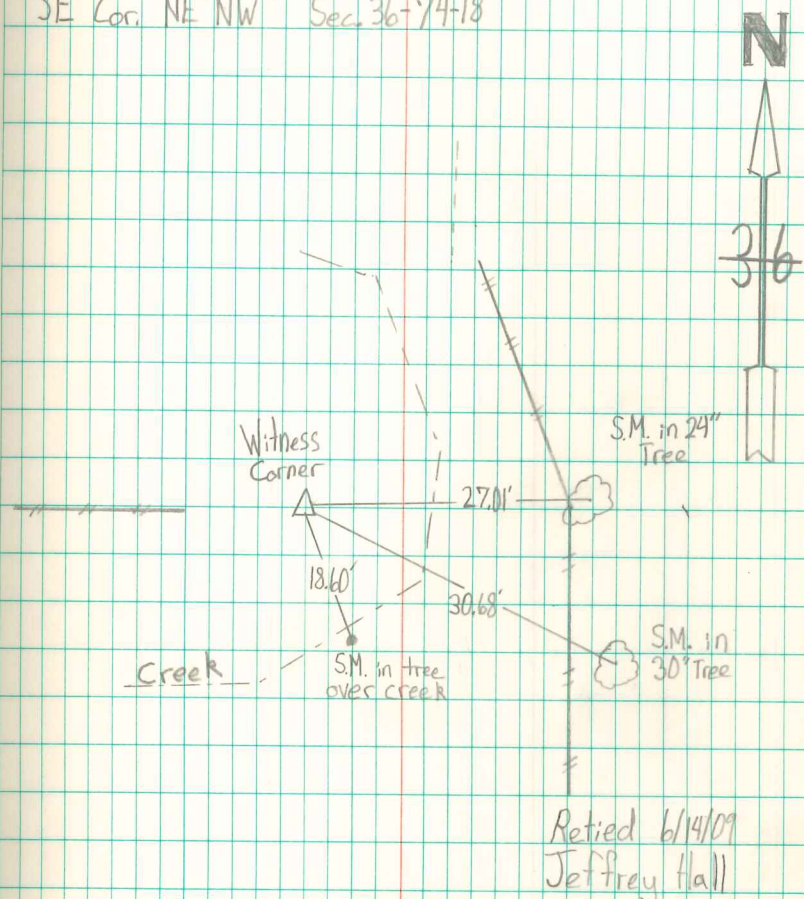 SE Cor. NE NW Sec. 36-74-18
N
36
S.M. in 24"
Tree
Witness
Corner
27.01'
18.60'
30.68'
S.M. in
30" Tree
Creek
S.M. in tree
over creek
Retied 6/14/09
Jeffrey Hall